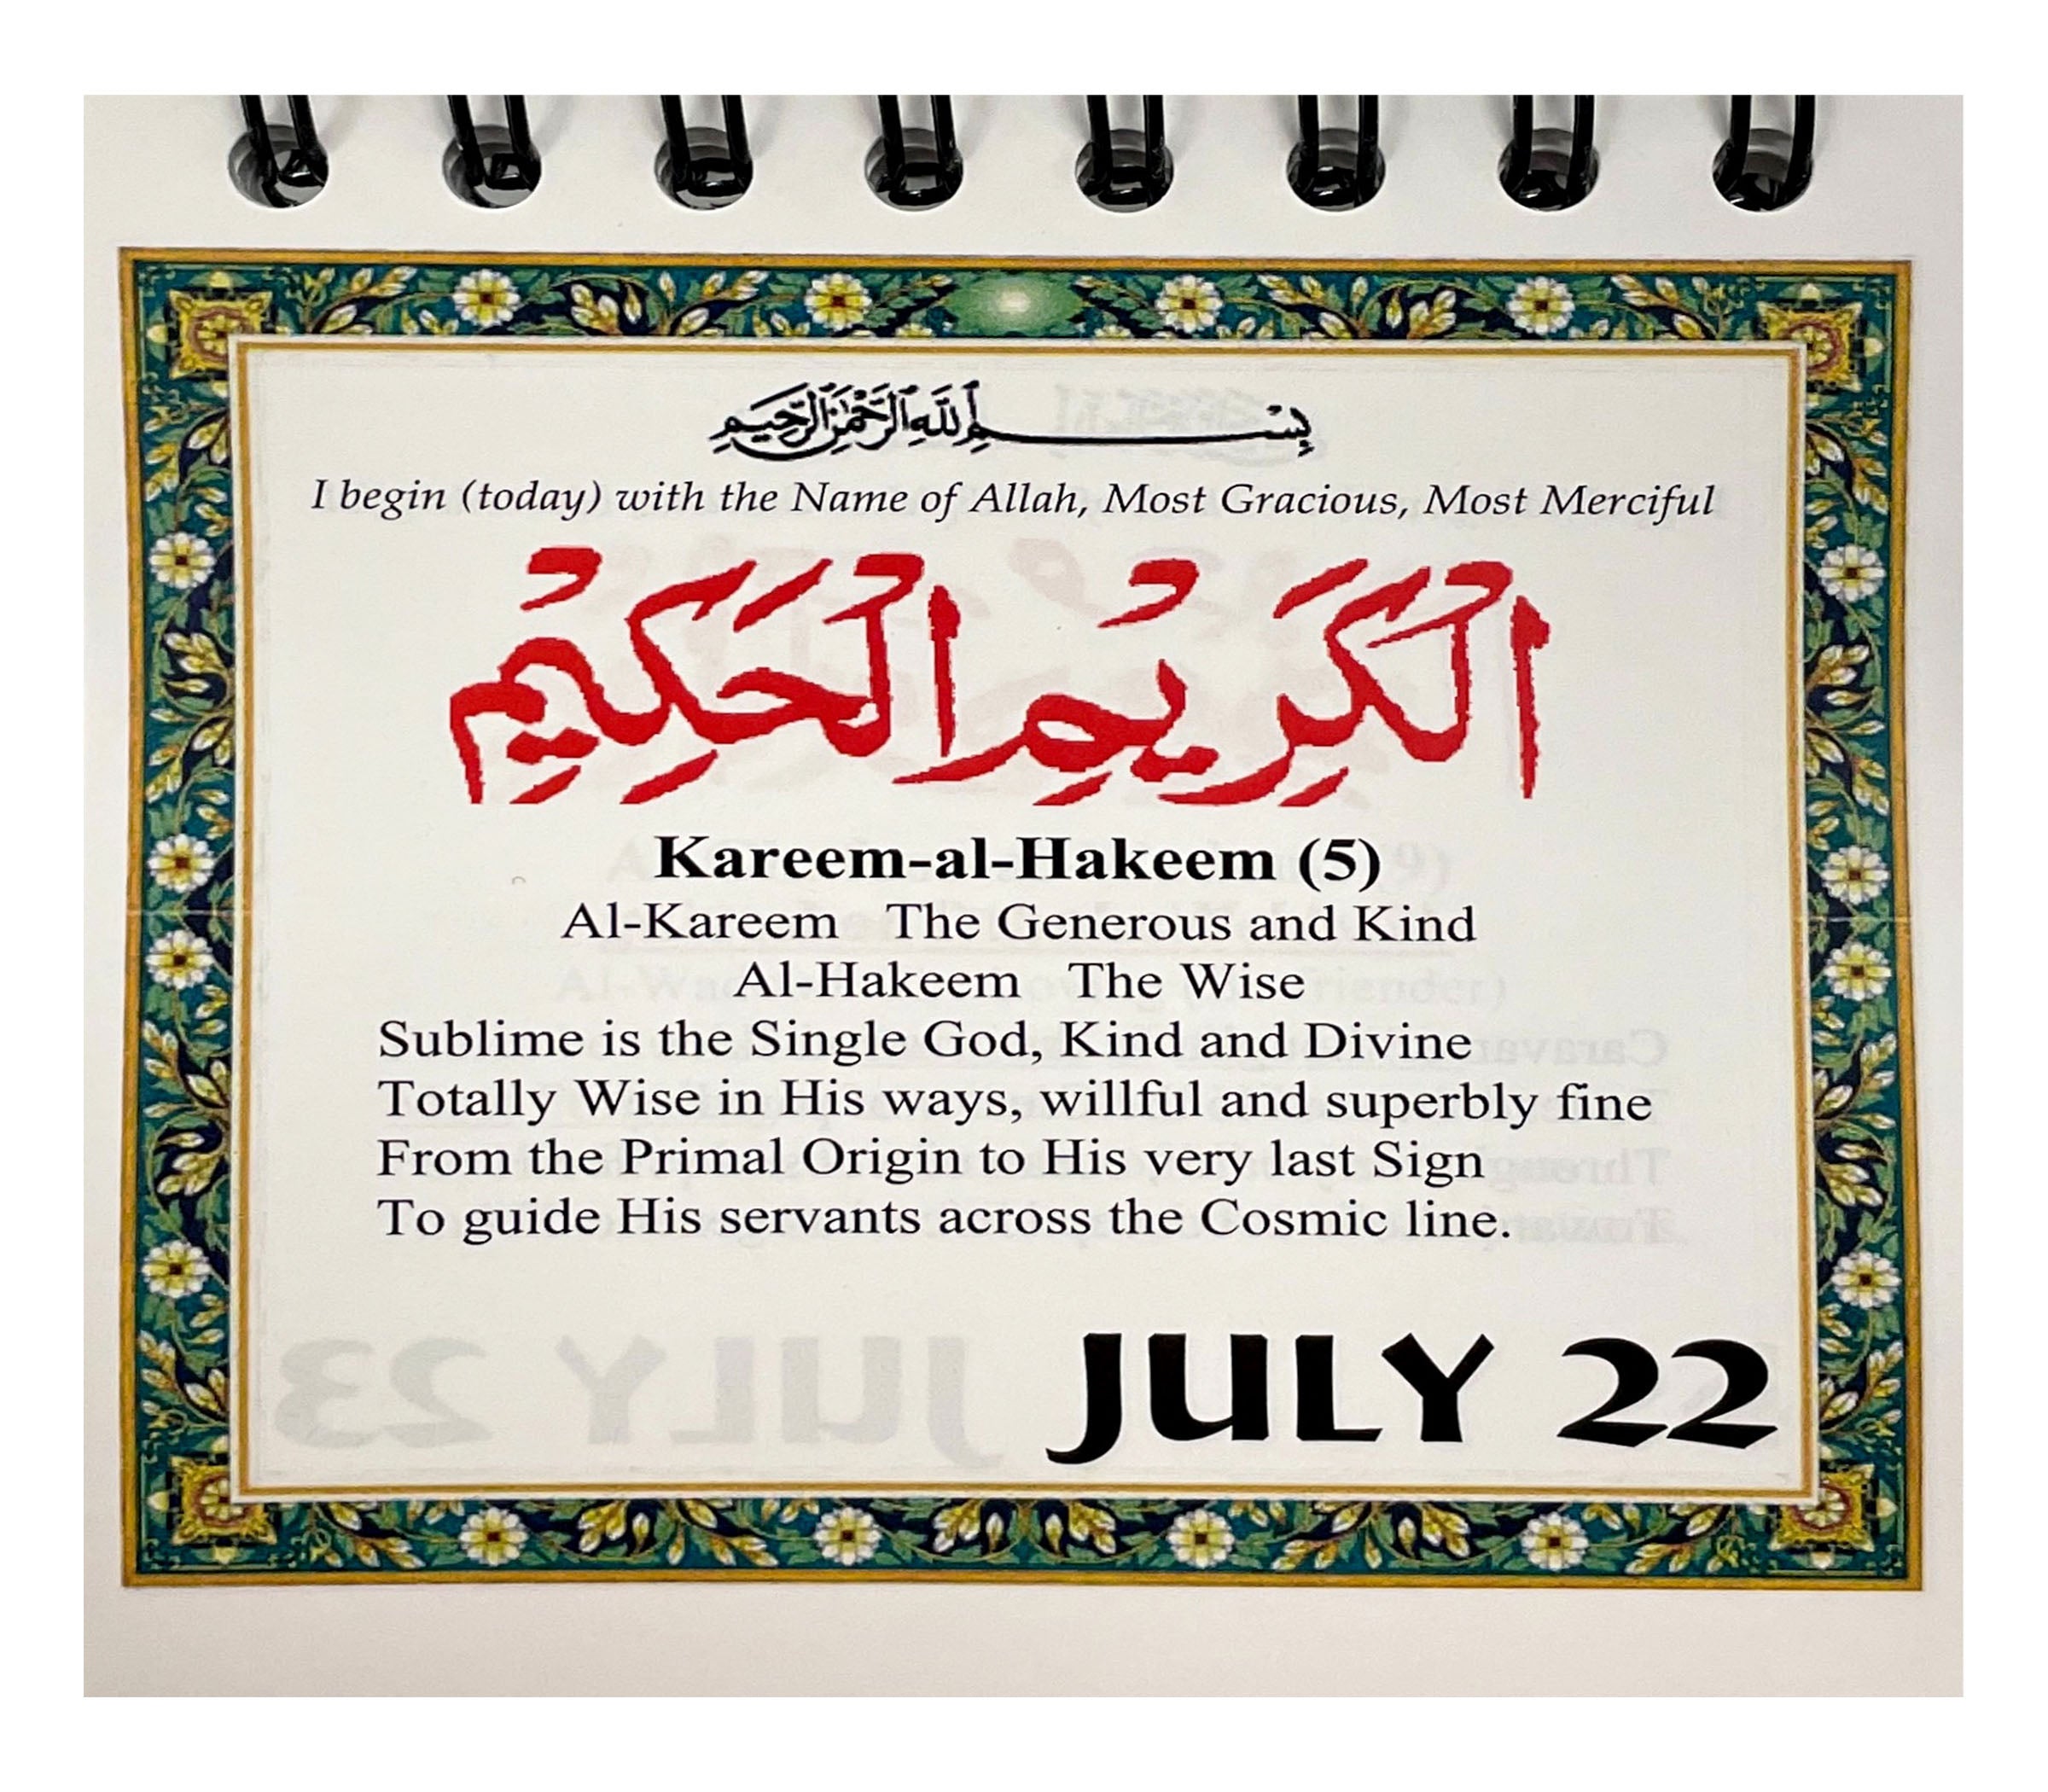 بِسْمِ اللَّهِ الرَّحْمَٰنِ الرَّحِيمِ
I begin (today) with the Name of Allah, Most Gracious, Most Merciful
الْكَرِيمُ الْحَكِيمُ
Kareem-al-Hakeem (5)
Al-Kareem The Generous and Kind
Al-Hakeem The Wise
Sublime is the Single God, Kind and Divine
Totally Wise in His ways, willful and superbly fine
From the Primal Origin to His very last Sign
To guide His servants across the Cosmic line.
JULY 22
JULY 23